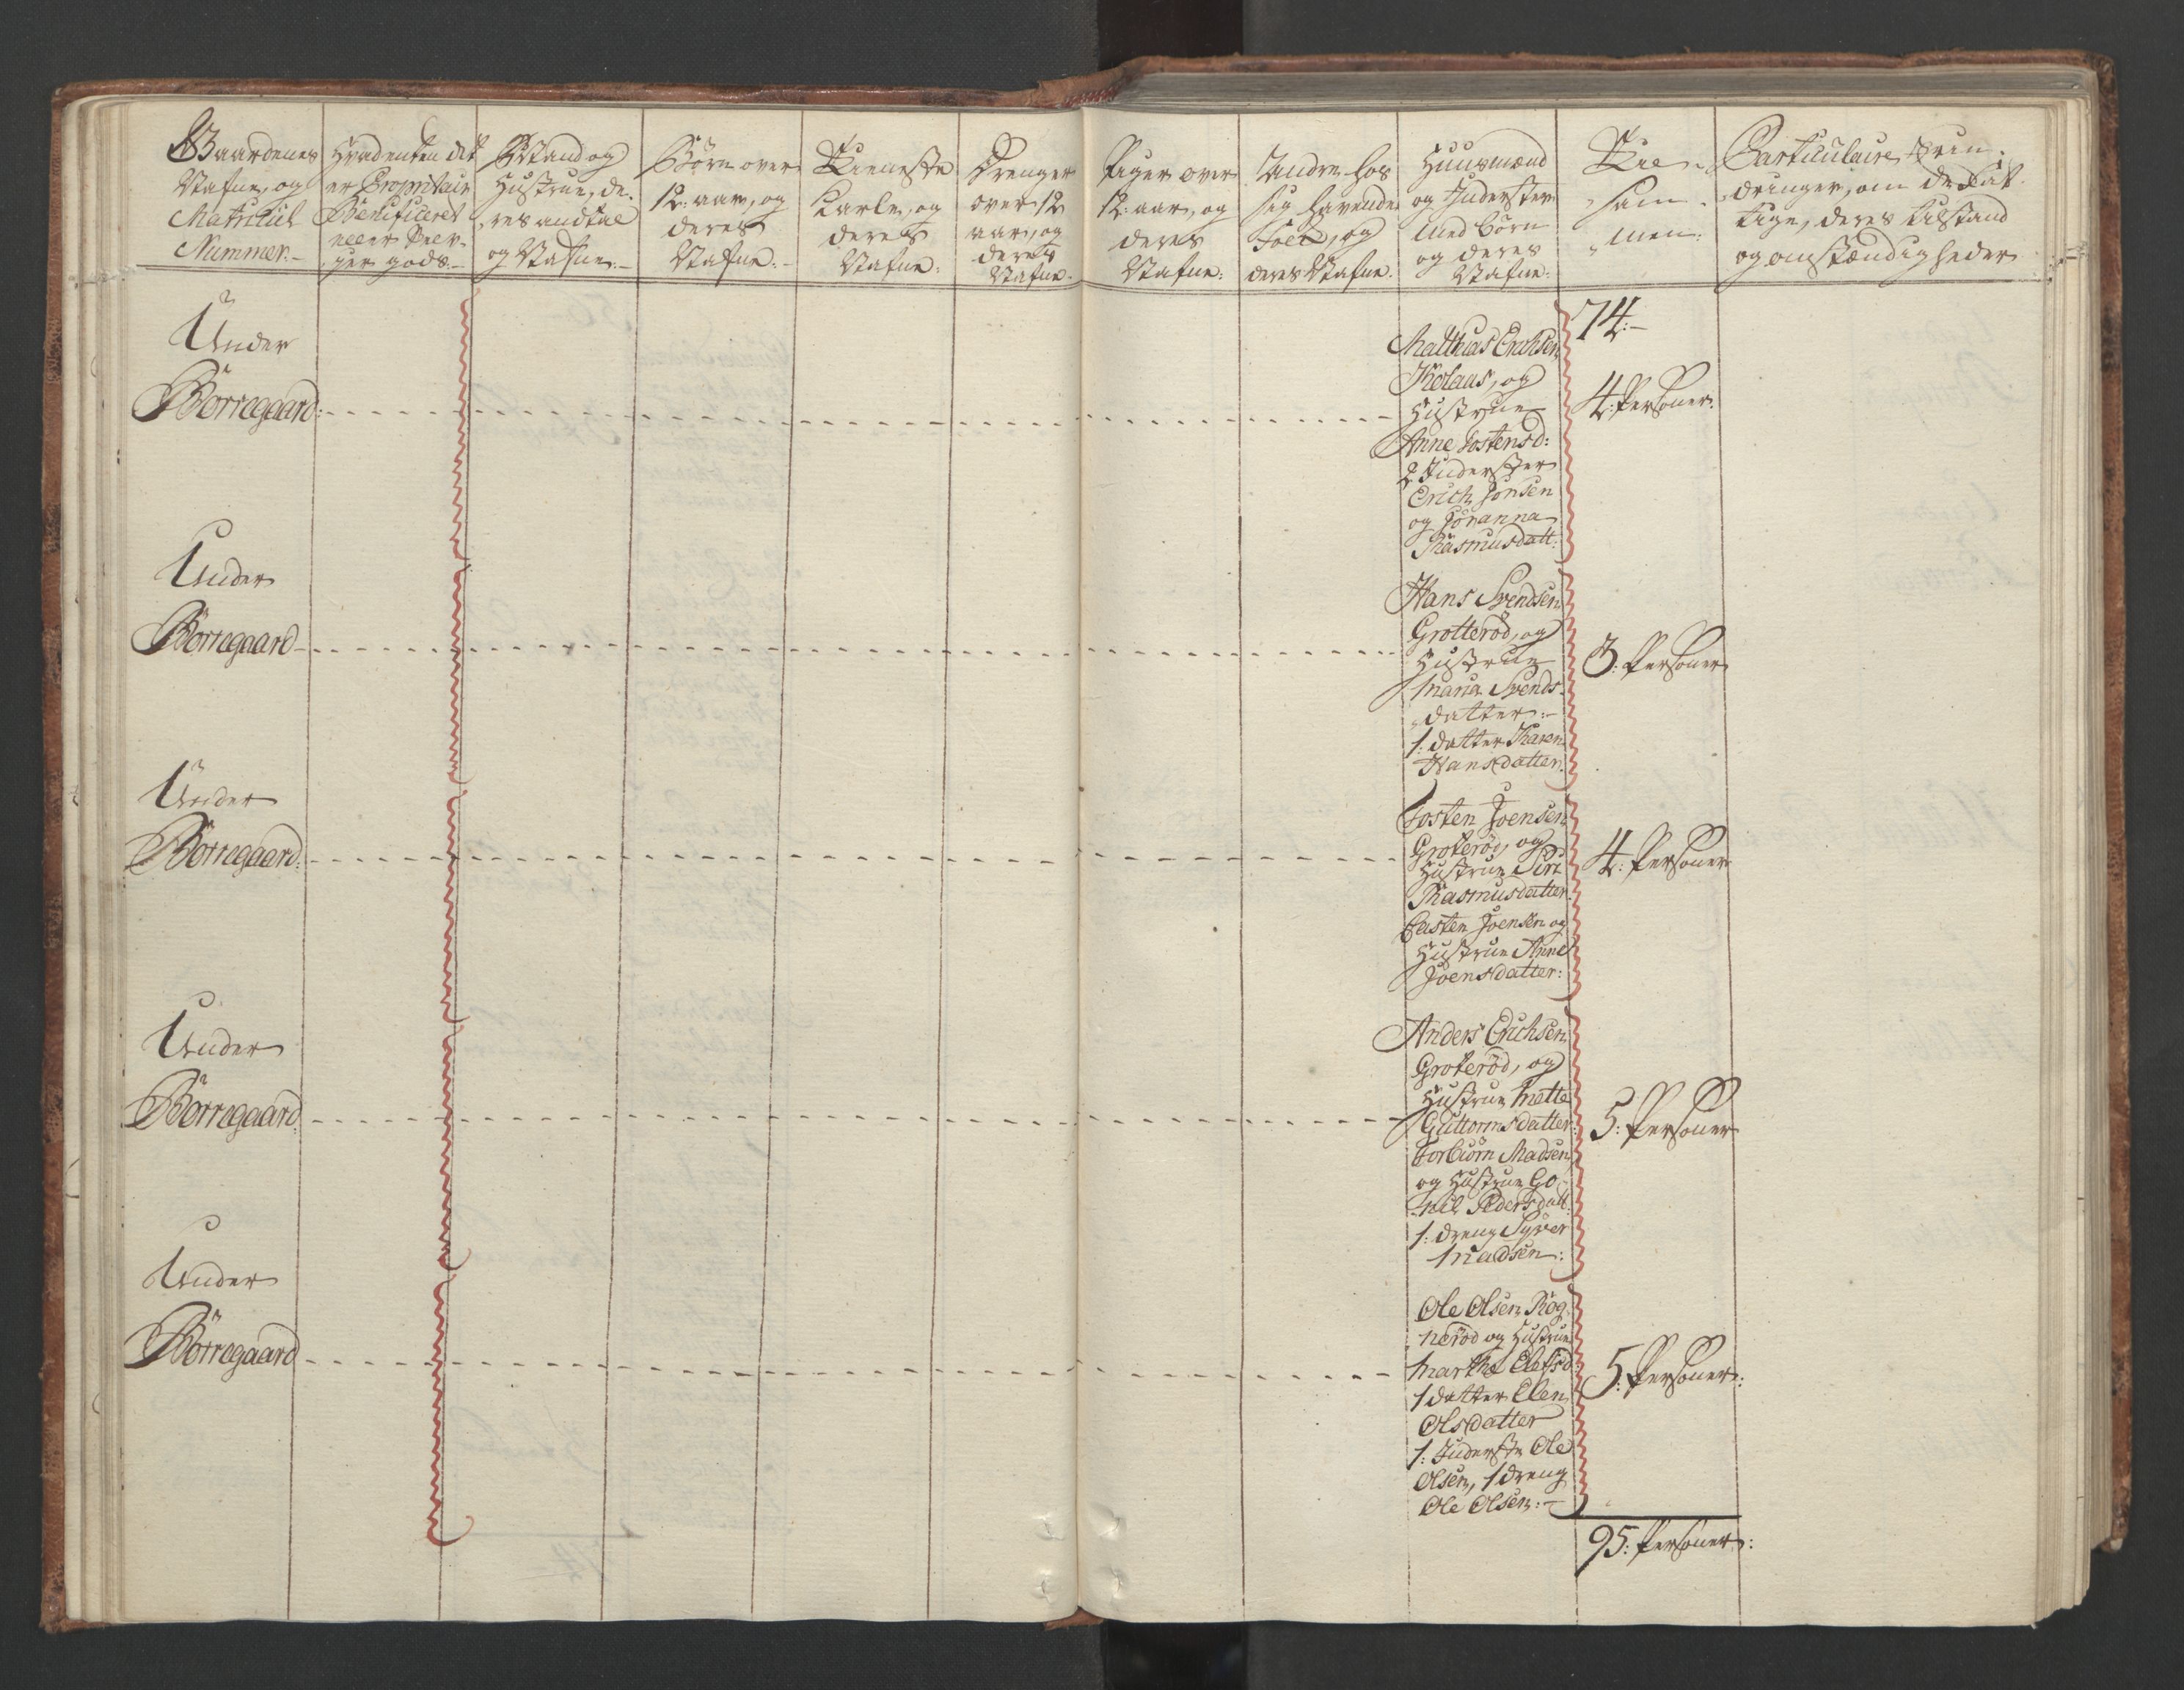 Gaardenes
Nafne, og
Matricul
Nummer:
Hvadenten det
er Propritair
Beneficeret
eller
gods.
Ægtand og
Hustrue, de-
res andtal
og Nafne:
Børn over
12: aar, og
deres
Nafne:
Tieneste
Karle, og
deres
Nafne:
Drenger
over 12
aar, og
deres
Nafne.
Piger over
12: aar, og
deres
Nafne:
Andre hos
sig havende
Folk, og
deres Nafne.
Huusmænd
og Inderster
med børn
og deres
Nafne:
Til-
sam-
men:
Particulaire Erin-
dringer, om de Fat-
tige, deres tilstand
og omstændigheder
74:
Under
Börregaard:
Matthias Erichsen
Kolaas, og
Hustrue
Anne Tostensd:
2 Inderster
Erich Jonsen
og Johanna
Rasmusdatt:
4: Personer:
Under
Börregaard
Hans Svendsen
Grotteröd, og
Hustrue
Maria Svends-
datter:
1: datter Karen
Hansdatter.
3: Personer
Under
Börregaard:
Tosten Joensen
Groteröd, og
Hustrue Siri
Rasmusdatter
Casten Joensen og
Hustrue Anne
Joensdatter:
4: Personer
Under
Börregaard:
Anders Erichsen
Groteröd, og
Hustrue Mette
Guttormsdatter:
Torbiörn Madsen
og Hustrue Go-
nil Pedersdatt:
1: dreng Syver
Madsen:
5: Personer
Under
Börregaard
Ole Olsen Rög-
neröd og Hustrue
Marthe Elefsd:
1 datter Elen
Olsdatter
1: Inderste Ole
Olsen, 1 dreng
Ole Olsen:
5: Personer:
95: Personer: